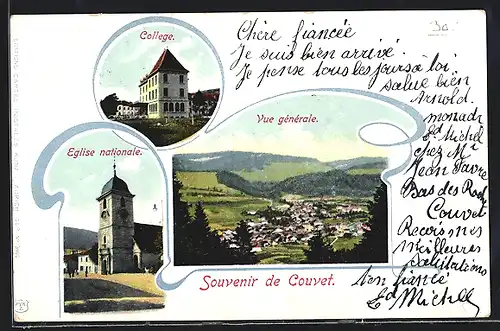 Chère fiancée
Je suis bien arrivé.
Je pense tous les jours a toi
salue bien
Arnold.
monadr
Ed Michel
chez Mr
Jean Favre
Bas des Roches
Couvet
Recois mes
meilleures
salutations
ton fiancé
Ed Michel
College.
Eglise nationale.
Vue générale.
Souvenir de Couvet.